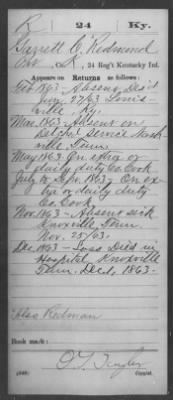 R 24 Ky.
Garrett C. Redmond
Cor. , 24 Reg't Kentucky Inf.
Appears on Returns as follows:
Feb. 1863 - Absent Des't
Jan. 27/63 Louis-
ville Ky.
Mar. 1863 - Absent on
Det'ched Service Nash
ville, Tenn.
May 1863 On extra or
daily duty Co. Cook
July to Sep. 1863 - On ex-
tra or daily duty
Co. Cook.
Nov. 1863 - Absent sick
Knoxville, Tenn.
Nov. 25/63.
Dec. 1863 - Loss Died in
Hospital, Knoxville
Tenn. Dec. 1, 1863.
Also Redman
Book mark:
(546)
Copyist.